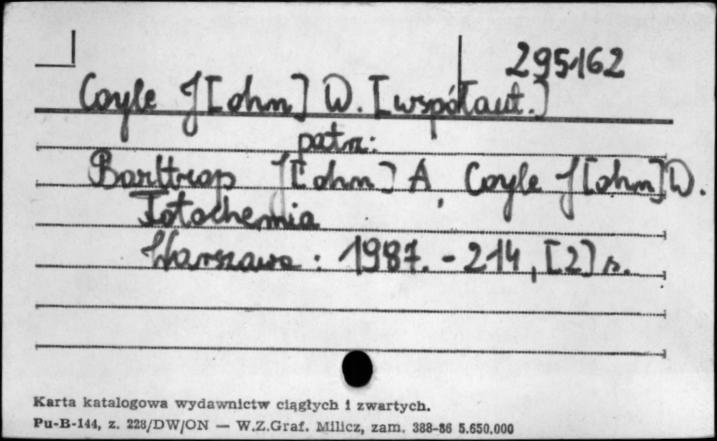 295162
Coyle J[ohn] D. [współaut.]
patrz:
Barltrop J[ohn] A, Coyle J[ohn] D.
Fotochemia
Warszawa: 1987. - 214, [2] s.
Karta katalogowa wydawnictw ciągłych i zwartych.
Pu-B-144, z. 228/DW/ON — W.Z.Graf. Milicz, zam. 388-86 5.650.000